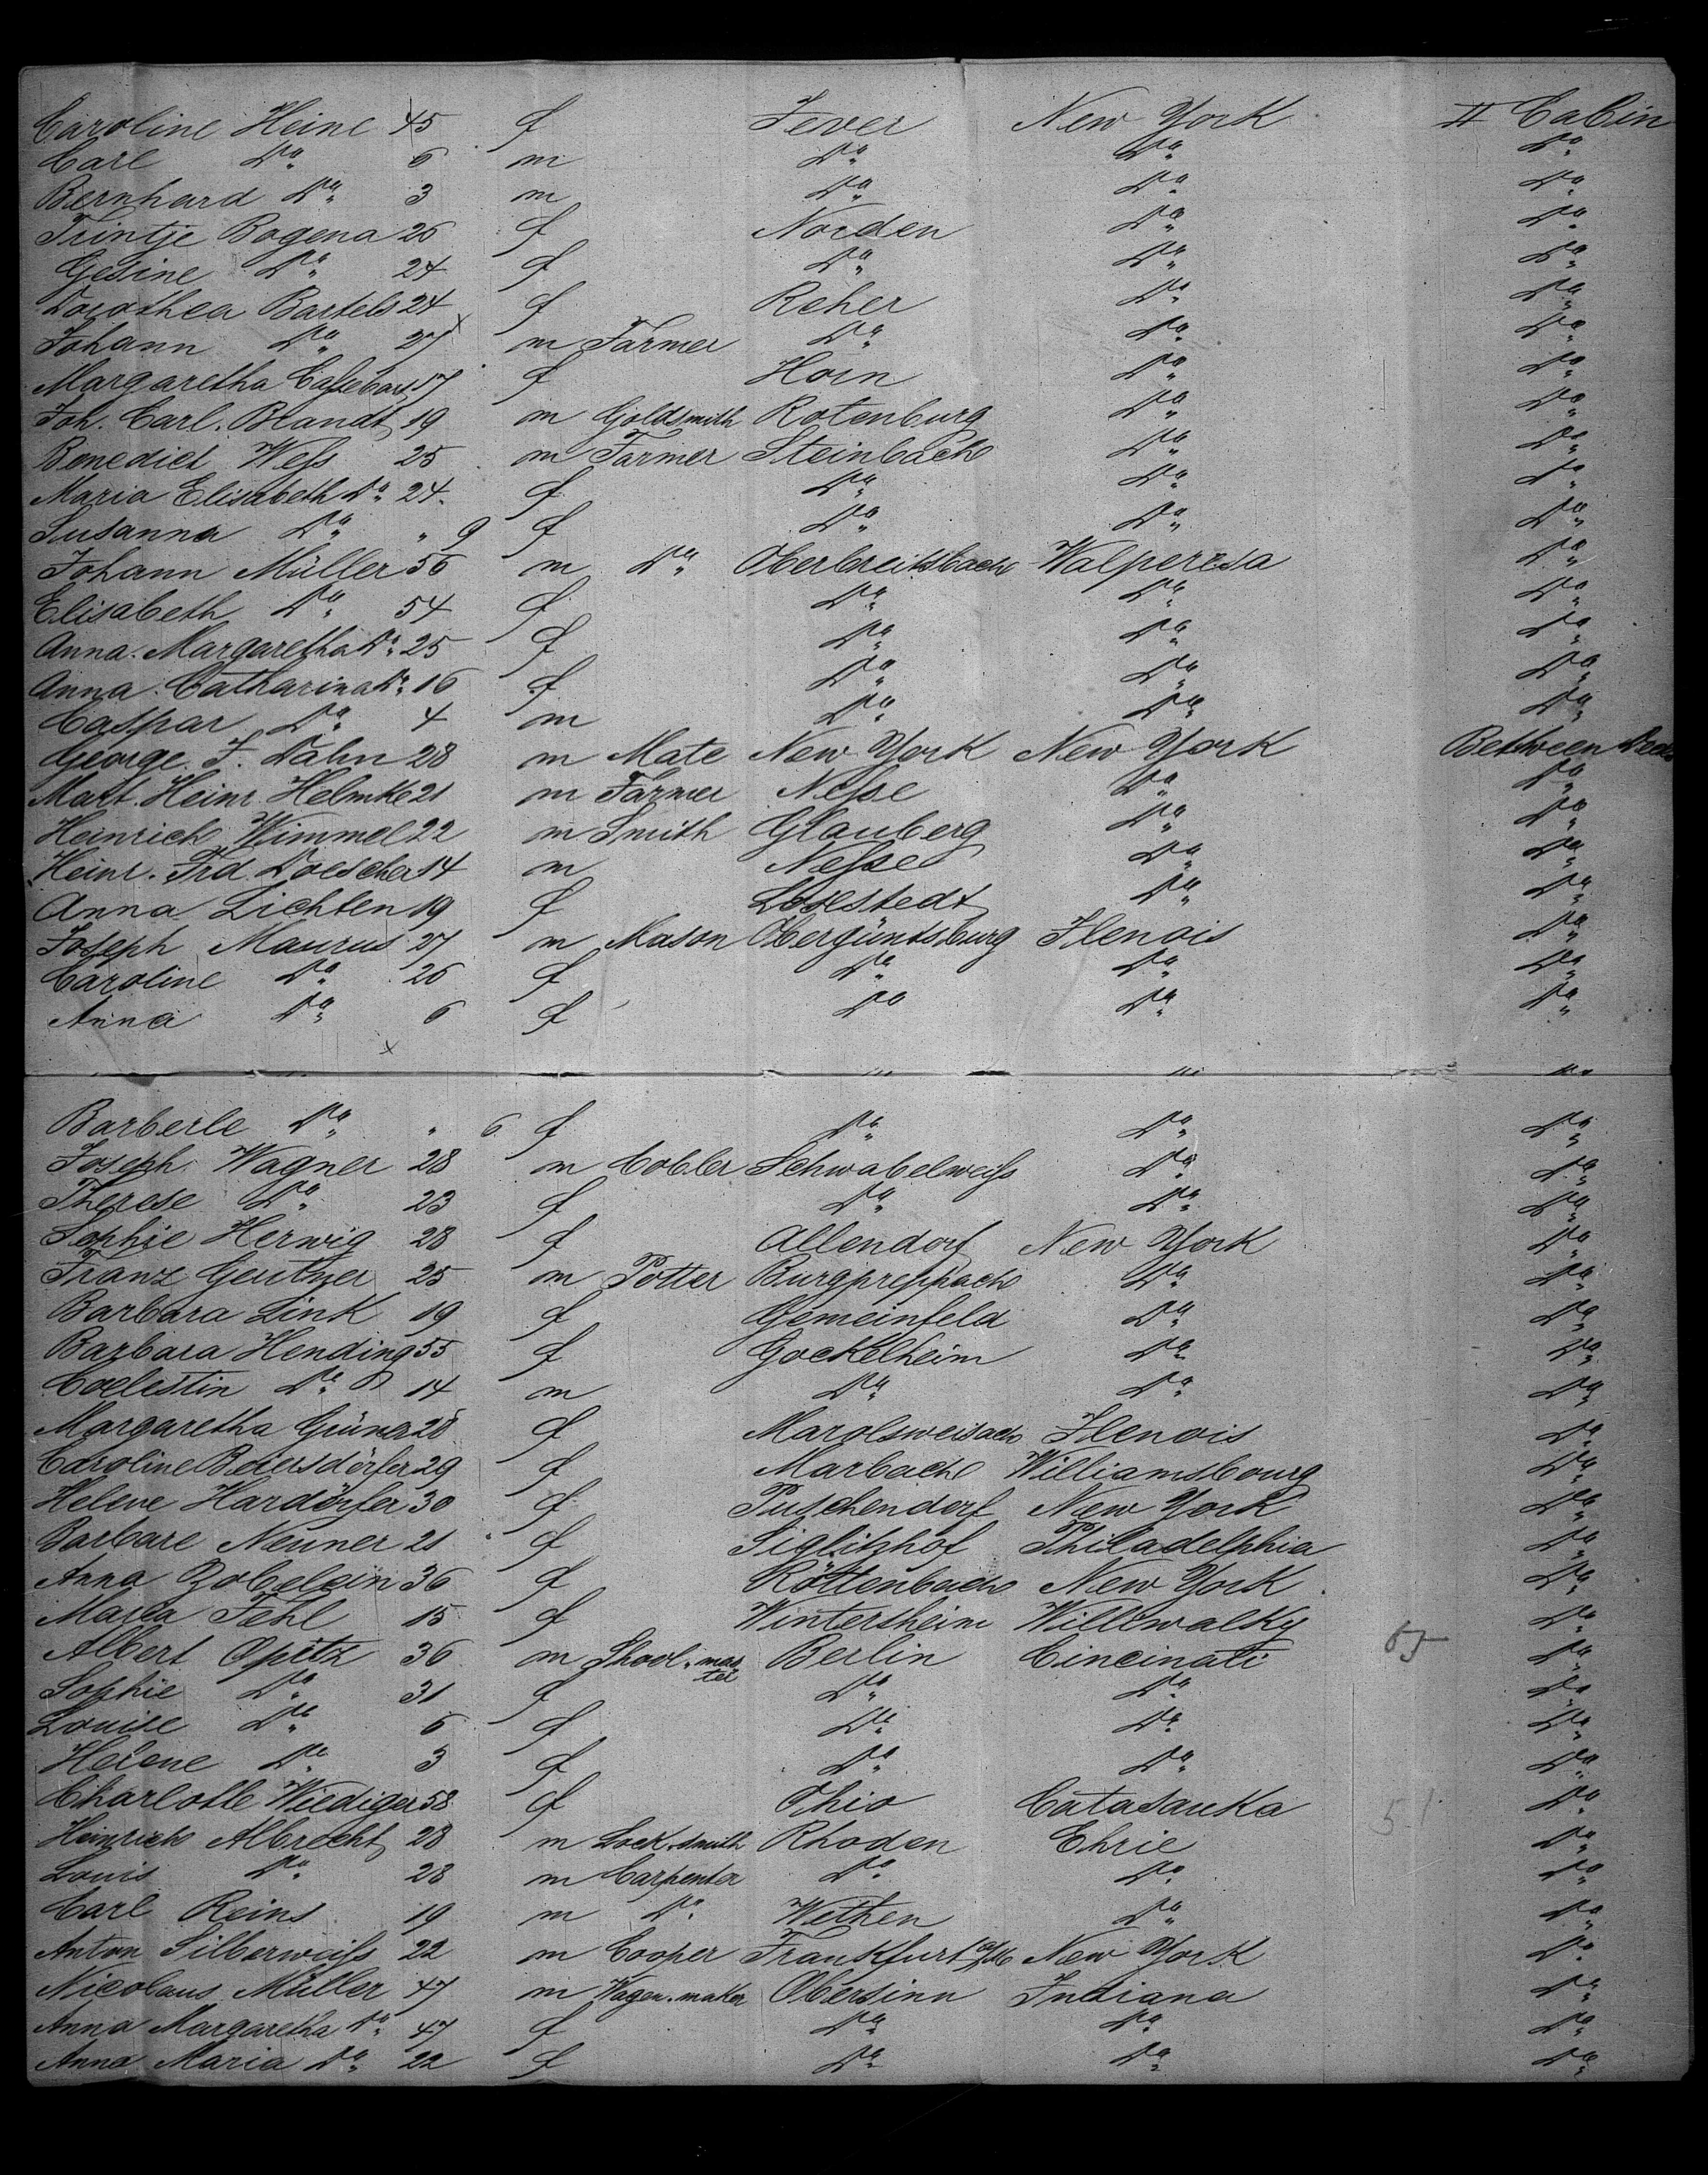 Caroline Heine 45 f Jever New York II Cabin
Carl Do. 6 m Do. Do. Do.
Bernhard Do. 3 m Do. Do. Do.
Trintje Bogena 26 f Norden Do. Do.
Gesine Do. 24 f Do. Do. Do.
Dorothea Bartels 24 f Reher Do. Do.
Johann Do. 27 m Farmer Do. Do. Do.
Margaretha 17 f Horn Do. Do.
Joh. Carl. Brandt 19 m Goldsmith Rotenburg Do. Do.
Benedict Weſs 25 m Farmer Steinbach Do. Do.
Maria Elisabeth Do. 24 f Do. Do. Do.
Susanna Do. " 9 f Do. Do. Do.
Johann Müller 56 m Do. Oberbreitsbach Walperesa Do.
Elisabeth Do. 54 f Do. Do. Do.
Anna. Margaretha Do. 25 f Do. Do. Do.
Anna. Catharina Do. 16 f Do. Do. Do.
Caspar Do. 4 m Do. Do. Do.
George. F. Dahn 28 m Mate New York New York Between Deck
Mart. Heinr. Helmke 21 m Farmer Neſse Do. Do.
Heinrich Wimmel 22 m Smith Glauberg Do. Do.
Heinr. Frd. Doescher 14 m Neſse Do. Do.
Anna Lichten 19 f Loxstedt Do. Do.
Joseph Maurus 27 m Mason Obergüntsburg Ilenois Do.
Caroline Do. 26 f Do. Do. Do.
Anna Do. 6 f Do Do. Do.
Barberle Do. " 6 f Do. Do. Do.
Joseph Wagner 28 m Cobler Schwabelweiſs Do. Do.
Therese Do. 23 f Do. Do. Do.
Sophie Herwig 28 f Allendorf New York Do.
Franz 25 m Potter Burgpreppach Do. Do.
Barbara Link 19 f Gemeinfeld Do. Do.
Barbara Hending 55 f Gockelheim Do. Do.
Coelestin Do. 14 m Do. Do. Do.
Margaretha Grüner 28 f Marolsweisach Ilenois Do.
Caroline Beiersdörfer 29 f Marbach Williamsbourg Do.
Helene Hardörfer 30 f Puschendorf New York Do.
Barbare Neuner 21 f Siglitzhof Philadelphia Do.
Anna Zobelein 36 f Röttenbach New York Do.
Maria Fehl 15 f Wintersheim Willwalky Do.
Albert Opitz 36 m Shool. master Berlin Cincinati Do.
Sophie Do. 31 f Do. Do. Do.
Louise Do. 6 f Do. Do. Do.
Helene Do. 3 f Do. Do. Do.
Charlotte Wiediger 58 f Ohio Catasauka 51 Do.
Heinrich Albrecht 28 m Lock. smith Rhoden Ehrie Do.
Louis Do. 28 m Carpenter Do. Do. Do.
Carl Reins 19 m Do. Wethen Do. Do.
Anton Silberweiſs 22 m Cooper Frankfurt a/M New York Do.
Nicolaus Müller 47 m Wagen. maker Obersinn Indiana Do.
Anna Margaretha Do. 47 f Do. Do. Do.
Anna Maria Do. 22 f Do. Do. Do.